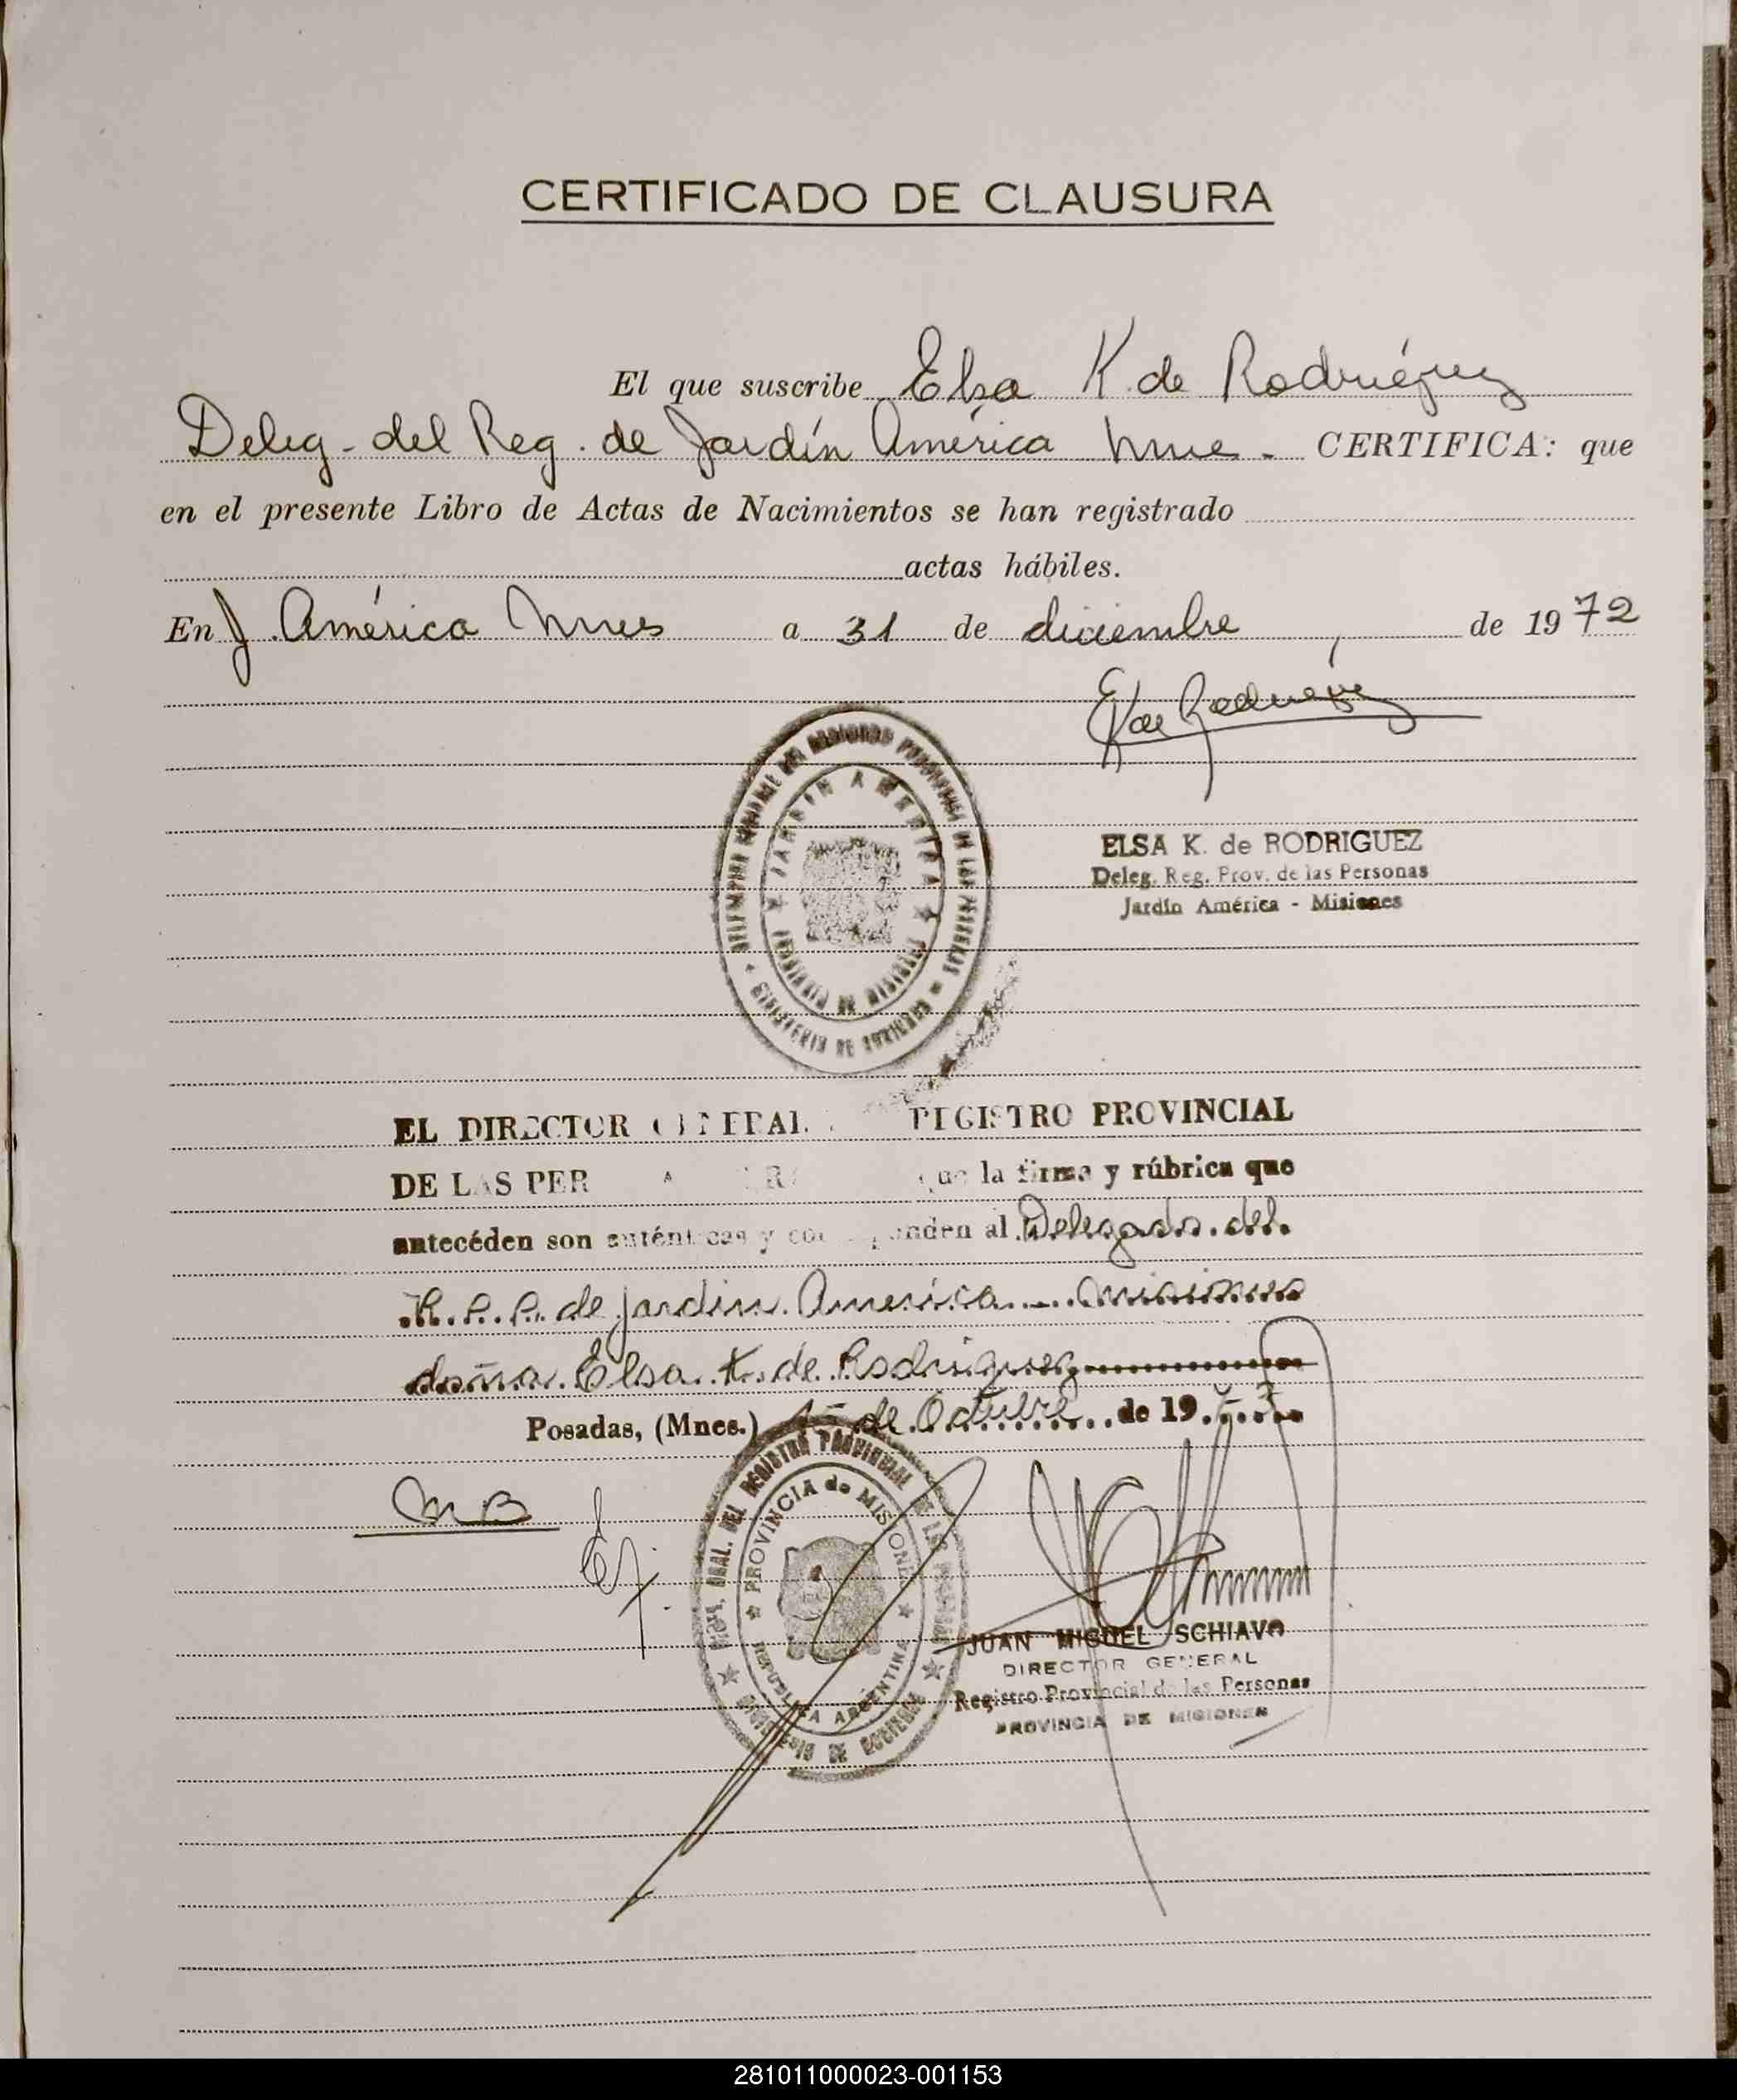 CERTIFICADO DE CLAUSURA
El que suscribe Elsa K. de Rodríguez
Deleg. del Reg. de Jardín América Mnes. CERTIFICA: que
en el presente Libro de Actas de Nacimientos se han registrado
actas hábiles.
En J. América Mnes a 31 de diciembre de 1972
E K de Rodríguez
JARDIN AMERICA
PROVINCIA DE MISIONES
ELSA K. de RODRIGUEZ
Deleg. Reg. Prov. de las Personas
Jardín América - Misiones
EL DIRECTOR GENERAL REGISTRO PROVINCIAL
DE LAS PER que la firma y rúbrica que
antecéden son auténticas y corresponden al Delegado del
R. P. P. de Jardín América Misiones
doña Elsa K. de Rodriguez
Posadas, (Mnes.) 15 de Octubre de 1973
MB
DEL REGISTRO PROVINCIAL DE LAS
PROVINCIA de MISIONES
REPUBLICA ARGENTINA
JUAN MIGUEL SCHIAVO
DIRECTOR GENERAL
Registro Provincial de las Personas
PROVINCIA DE MISIONES
281011000023-001153